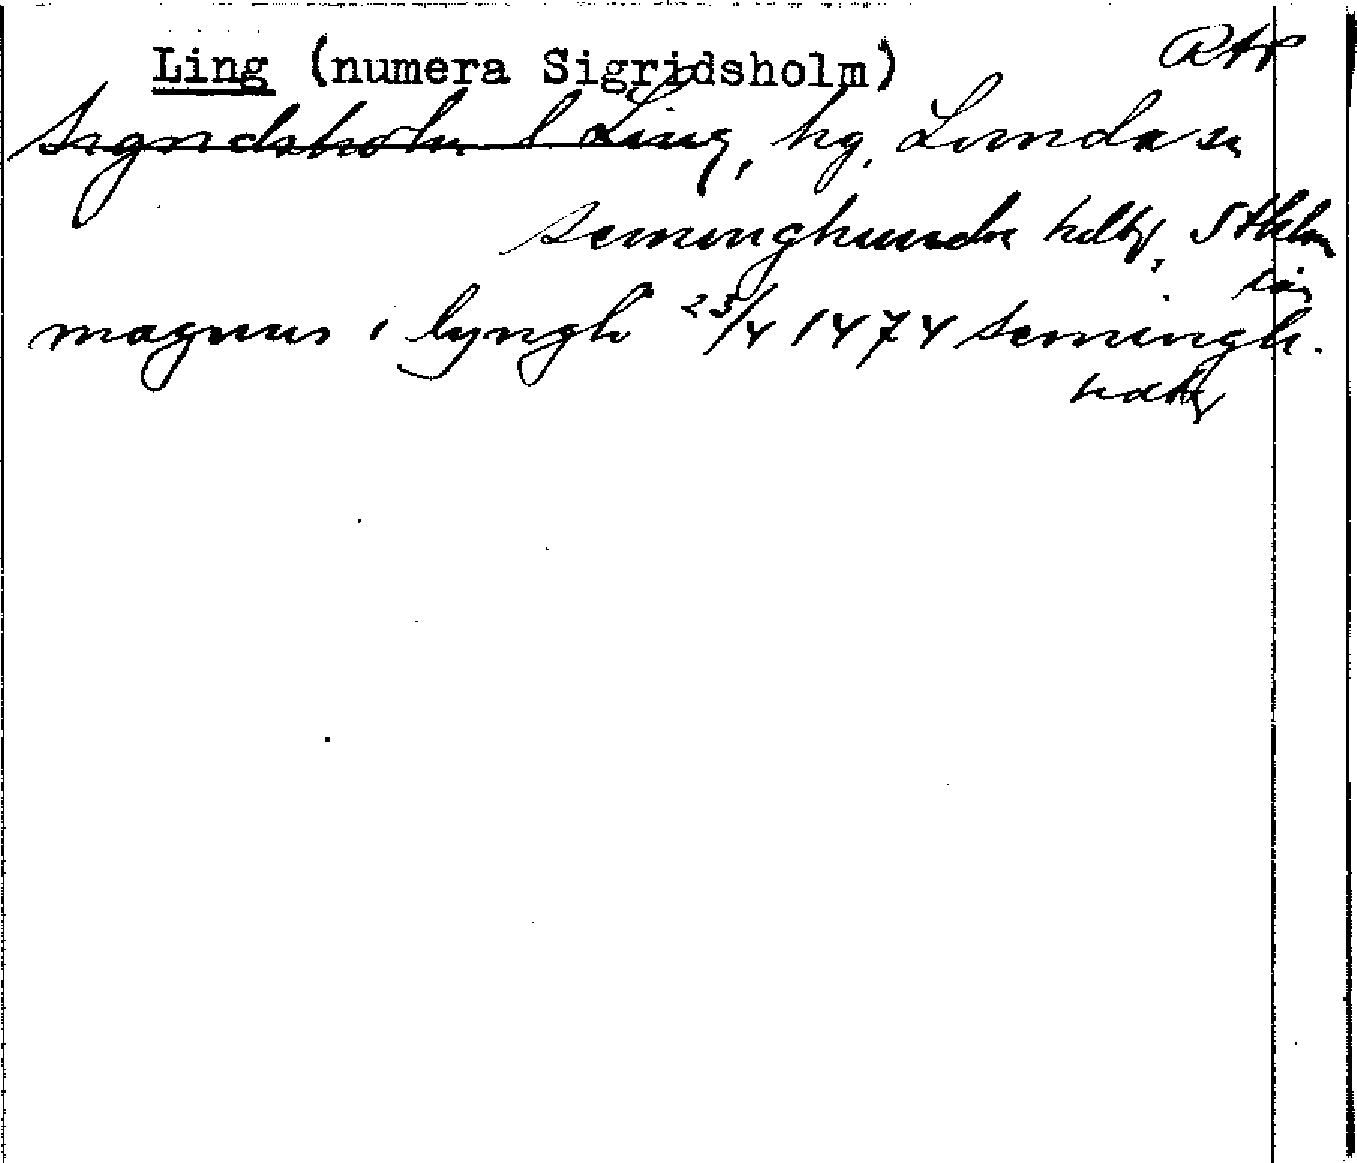 Ling (numera Sigridsholm) RAp
Sigridsholm l Ling, hg, Lunda sn
Seminghundra hdtg, Sthlm
län
magnus i lyngh 23/4 1474 Semingh.
hdtg